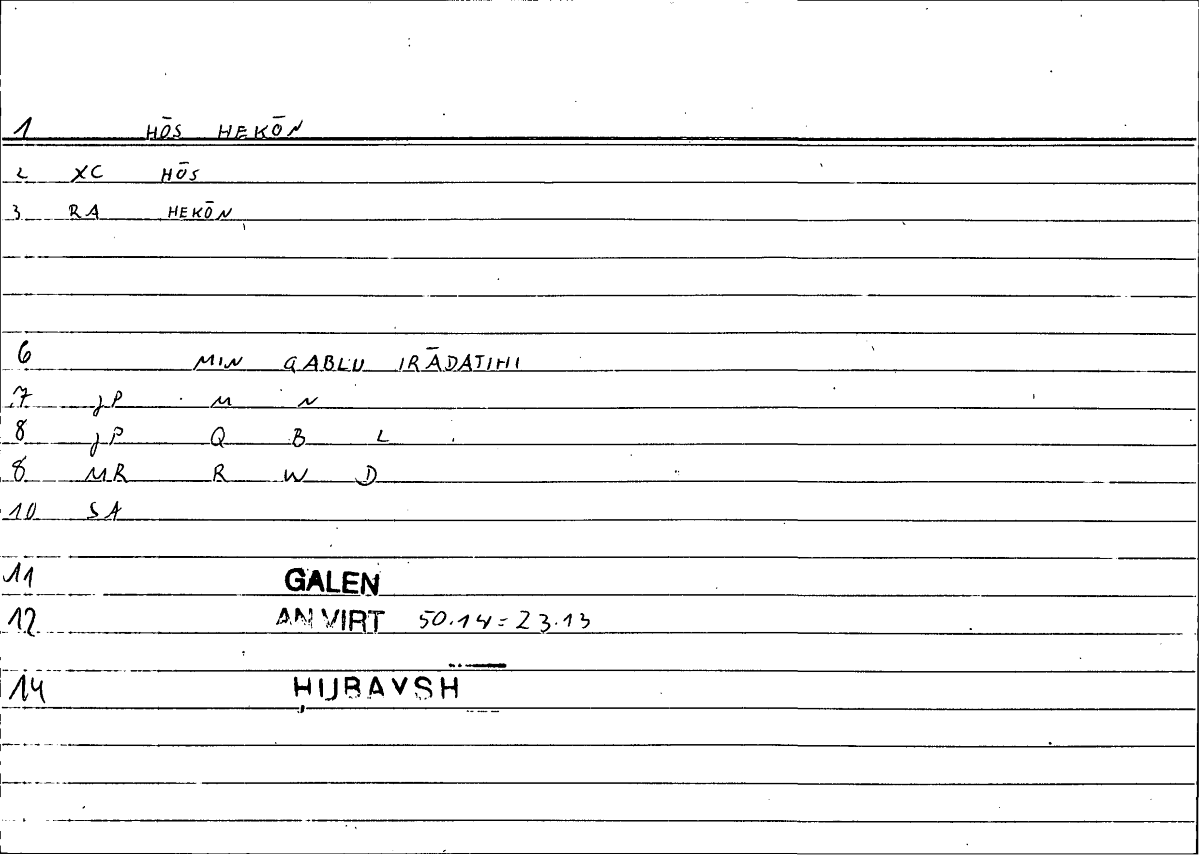 1 HŌS HEKŌN
2 XC HŌS
3 RA HEKŌN
6 MIN QABLU IRĀDATIHI
7 JP M N
8 JP Q B L
8 MR R W D
10 SA
11 GALEN
12 AN VIRT 50.14 = 23.13
14 ḤUBAYSH